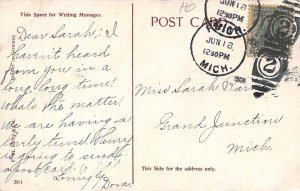 This Space for Writing Messages.
POST CARD
Dear Sarah: I
haven't heard
from you in a
long long time!
Whats the matter.
We are having a
early time Henry
is going to send
a post card
Lovingly
Dora.
JUN 12
12:30 PM
MICH.
JUN 12
12:30 PM
MICH.
2
2
Miss Sarah
Grand Junction
Mich.
This Side for the address only.